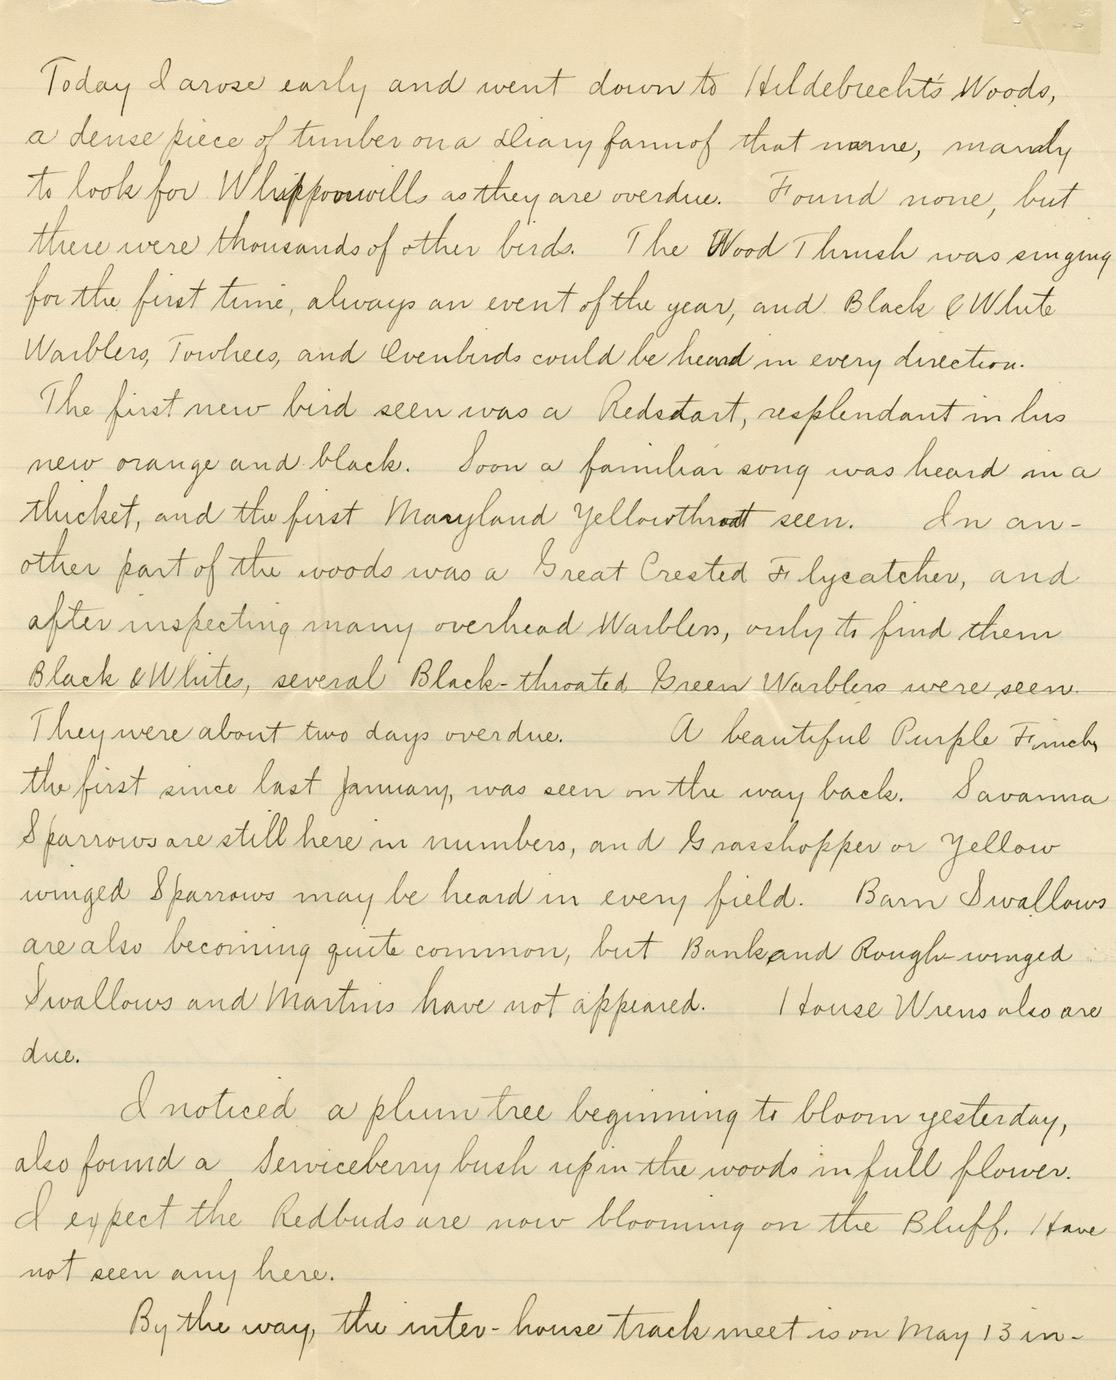 Today I arose early and went down to Hildebrecht's Woods,
a dense piece of timber on a Diary farm of that name, mainly
to look for Whippoorwills as they are overdue. Found none, but
there were thousands of other birds. The Wood Thrush was singing
for the first time, always an event of the year, and Black & White
Warblers, Towhees, and Ovenbirds could be heard in every direction.
The first new bird seen was a Redstart, resplendant in his
new orange and black. Soon a familiar song was heard in a
thicket, and the first Maryland Yellowthroat seen. In an-
other part of the woods was a Great Crested Flycatcher, and
after inspecting many overhead Warblers, only to find them
Black & Whites, several Black-throated Green Warblers were seen.
They were about two days overdue. A beautiful Purple Finch,
the first since last January, was seen on the way back. Savanna
Sparrows are still here in numbers, and Grasshopper or Yellow
winged Sparrows may be heard in every field. Barn Swallows
are also becoming quite common, but Bank and Rough-winged
Swallows and Martins have not appeared. House Wrens also are
due.
I noticed a plum tree beginning to bloom yesterday,
also found a Serviceberry bush up in the woods in full flower.
I expect the Redbuds are now blooming on the Bluff. Have
not seen any here.
By the way, the inter-house track meet is on May 13 in-